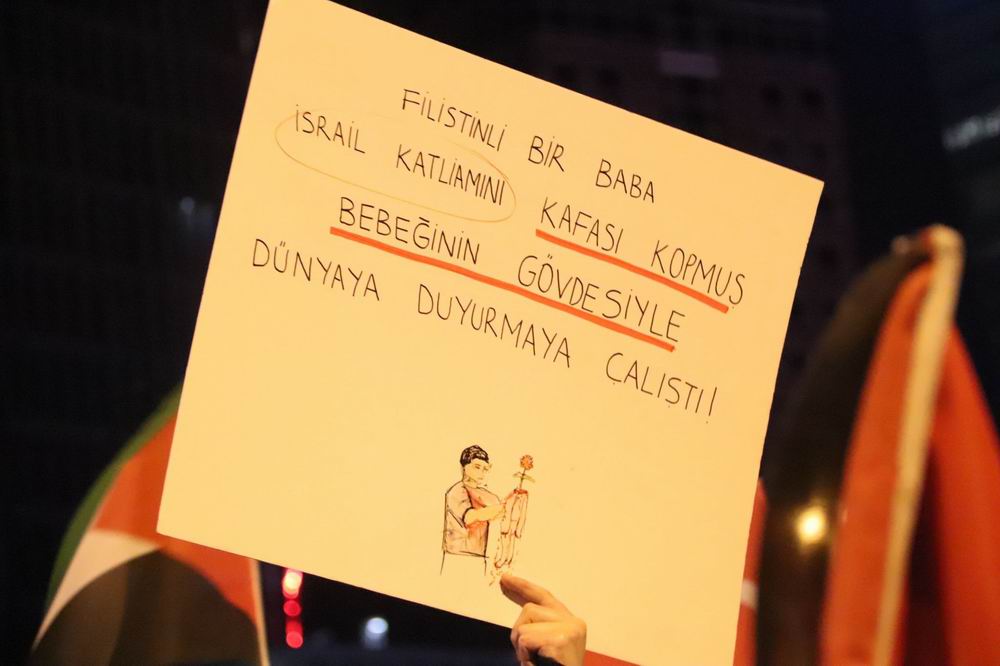 FİLİSTİNLİ BİR BABA
İSRAİL KATLİAMINI KAFASI KOPMUŞ
BEBEĞİNİN GÖVDESİYLE
DÜNYAYA DUYURMAYA ÇALIŞTI!